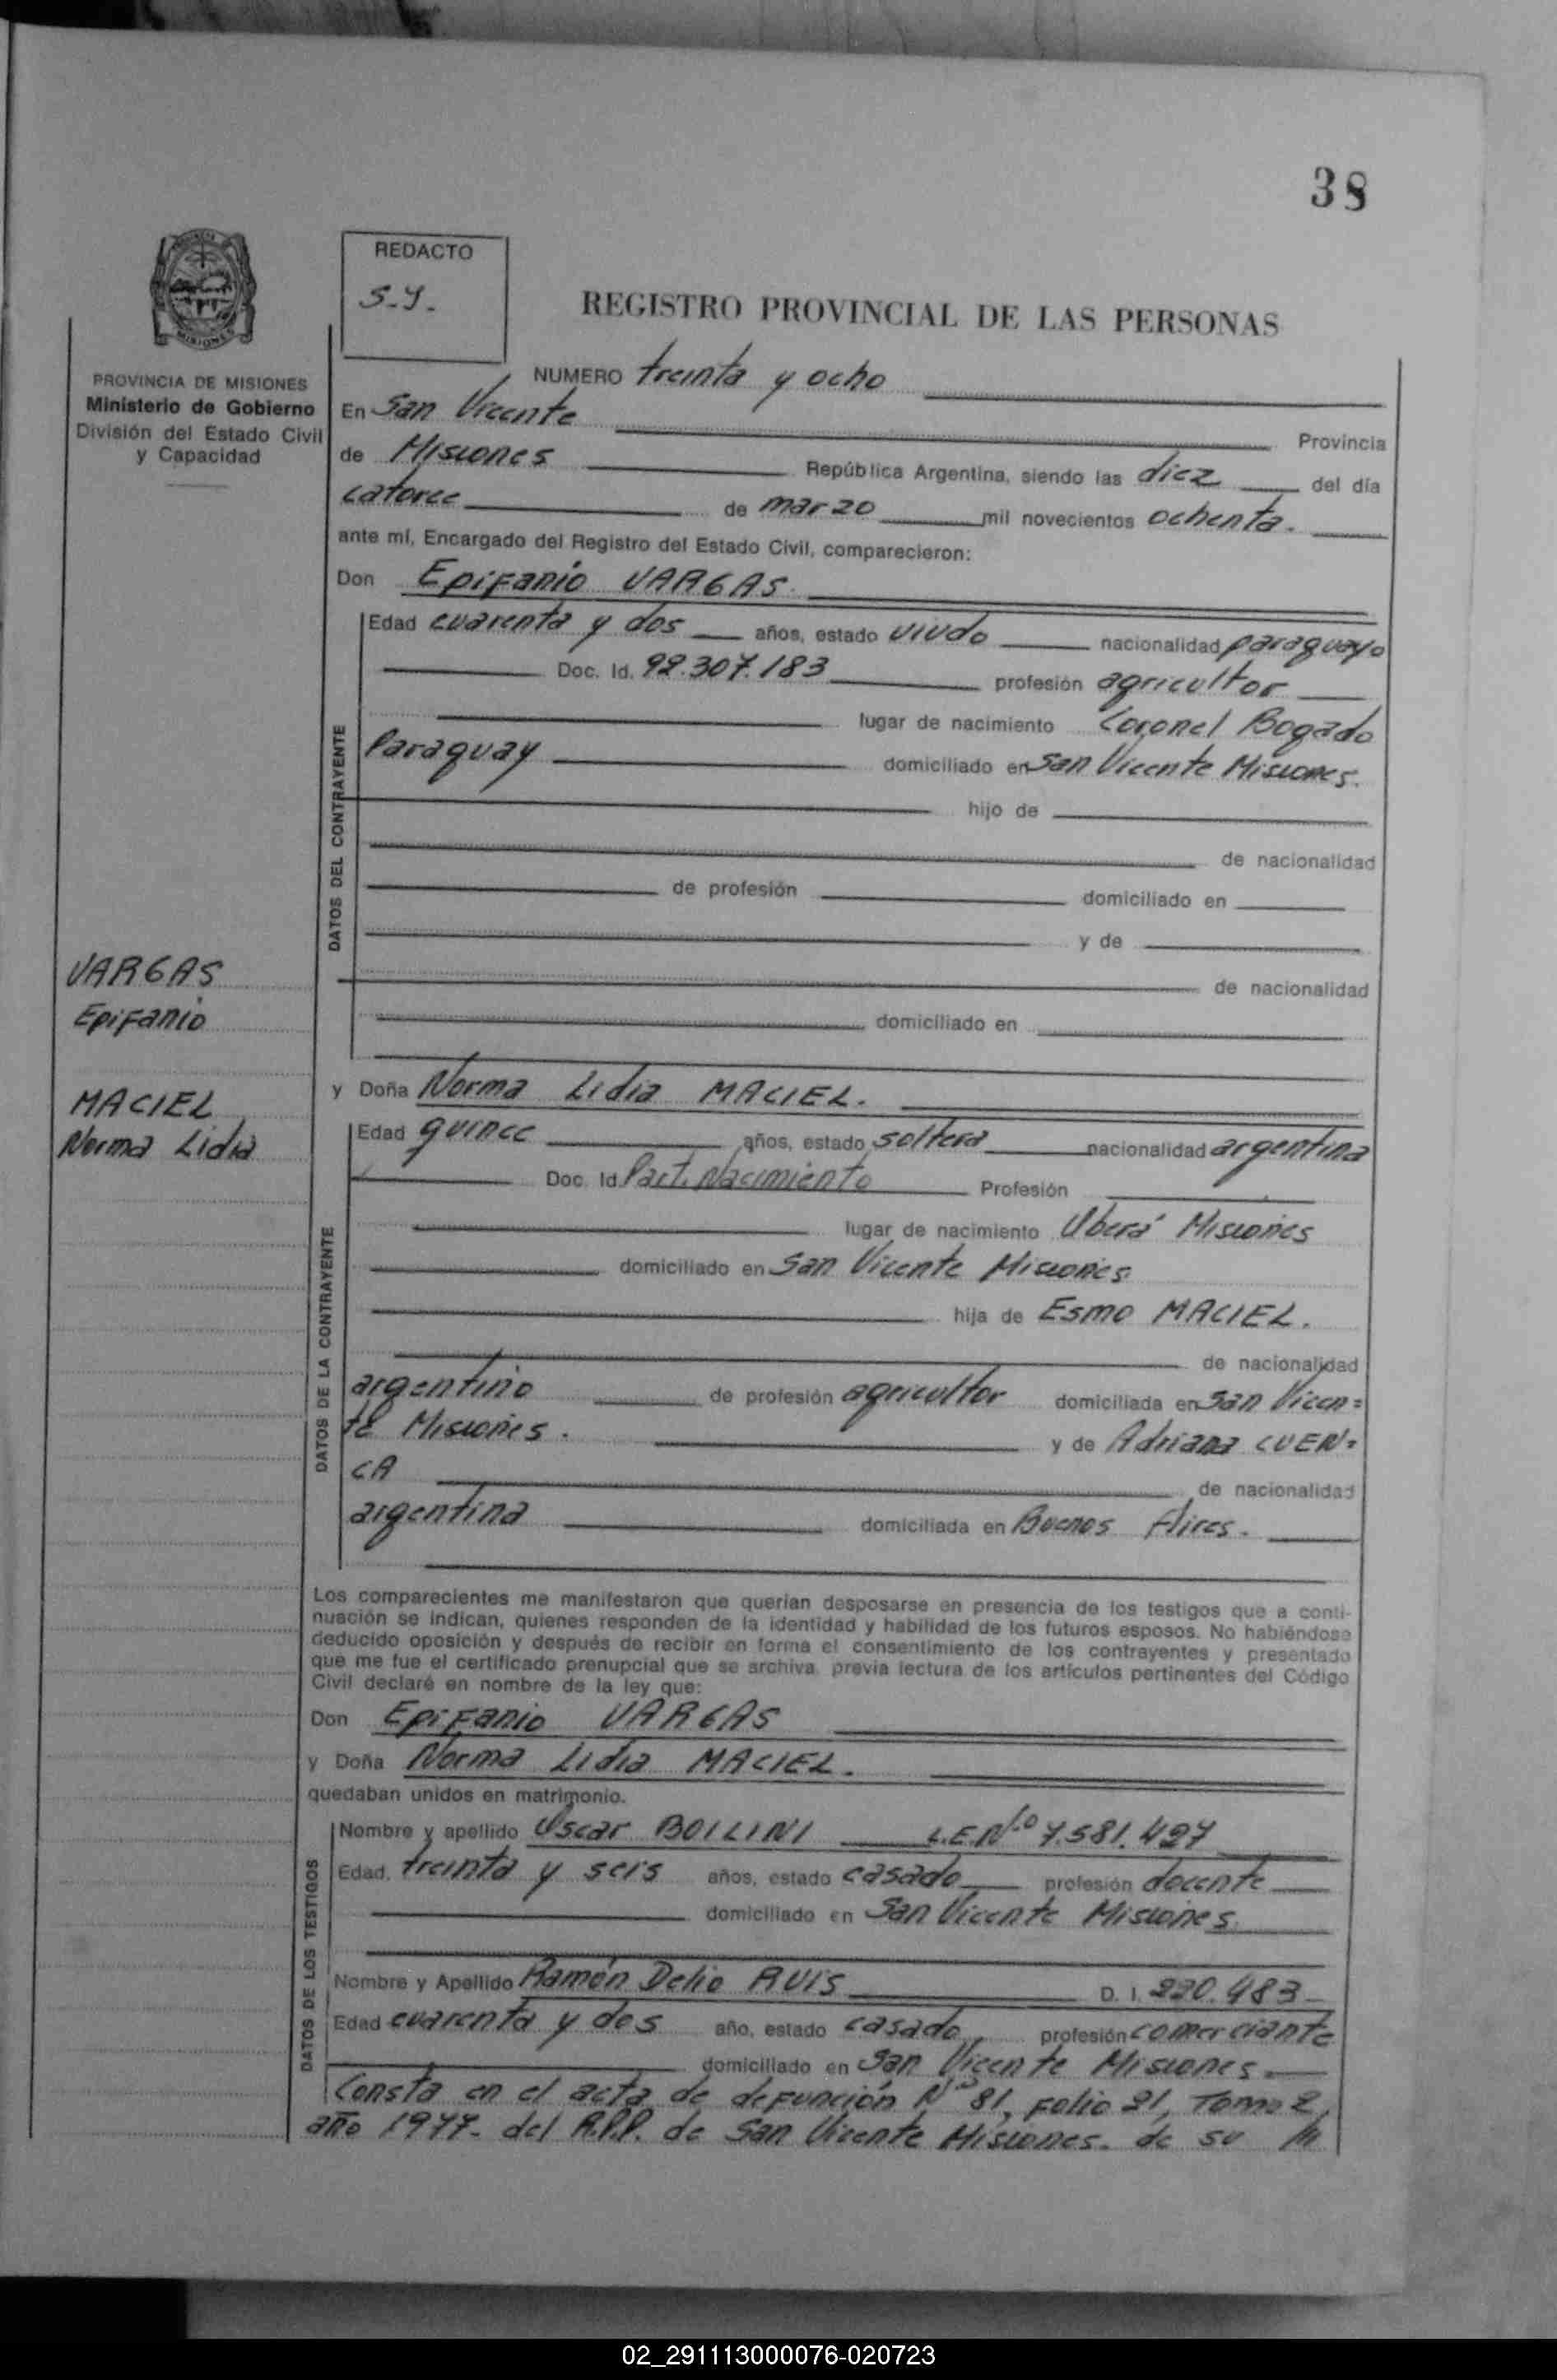 38
REDACTO
S-Y-
REGISTRO PROVINCIAL DE LAS PERSONAS
PROVINCIA DE MISIONES
Ministerio de Gobierno
División del Estado Civil
y Capacidad
NUMERO treinta y ocho
En San Vicente Provincia
de Misiones República Argentina, siendo las diez del día
catorce de marzo mil novecientos ochenta.
ante mí, Encargado del Registro del Estado Civil, comparecieron:
Don Epifanio VARGAS.
DATOS DEL CONTRAYENTE
Edad cuarenta y dos años, estado viudo nacionalidad paraguayo
Doc. Id. 92.307.183 profesión agricultor
lugar de nacimiento Coronel Bogado
Paraguay domiciliado en San Vicente Misiones.
hijo de
de nacionalidad
de profesión domiciliado en
y de
de nacionalidad
domiciliado en
VARGAS
Epifanio
MACIEL
Norma Lidia
y Doña Norma Lidia MACIEL.
DATOS DE LA CONTRAYENTE
Edad quince años, estado soltera nacionalidad argentina
Doc. Id. Part. Nacimiento Profesión
lugar de nacimiento Oberá Misiones
domiciliado en San Vicente Misiones
hija de Esmo MACIEL.
de nacionalidad
argentino de profesión agricultor domiciliada en San Vicen=
te Misiones. y de Adriana CUEN=
CA de nacionalidad
argentina domiciliada en Buenos Aires.
Los comparecientes me manifestaron que querían desposarse en presencia de los testigos que a conti-
nuación se indican, quienes responden de la identidad y habilidad de los futuros esposos. No habiéndose
deducido oposición y después de recibir en forma el consentimiento de los contrayentes y presentado
que me fue el certificado prenupcial que se archiva, previa lectura de los artículos pertinentes del Código
Civil declaré en nombre de la ley que:
Don Epifanio VARGAS
y Doña Norma Lidia MACIEL.
quedaban unidos en matrimonio.
DATOS DE LOS TESTIGOS
Nombre y apellido Oscar BOILINI L.E.N.º 7.581.427
Edad. treinta y seis años, estado casado profesión docente
domiciliado en San Vicente Misiones.
Nombre y Apellido Ramón Delio RUIS D. I. 220.483
Edad cuarenta y dos año, estado casado, profesión comerciante
domiciliado en San Vicente Misiones.
Consta en el acta de defunción Nº 81, Folio 21, Tomo 2,
año 1977- del R.P.P. de San Vicente Misiones. de su
02_291113000076-020723